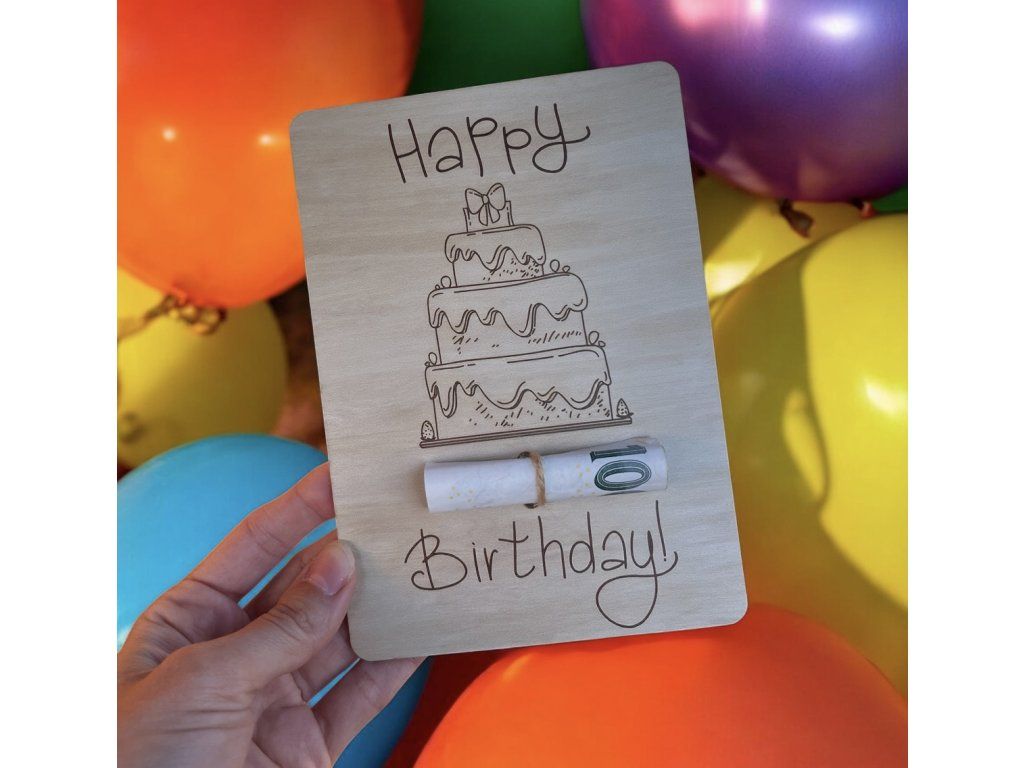 Happy
10
Birthday!